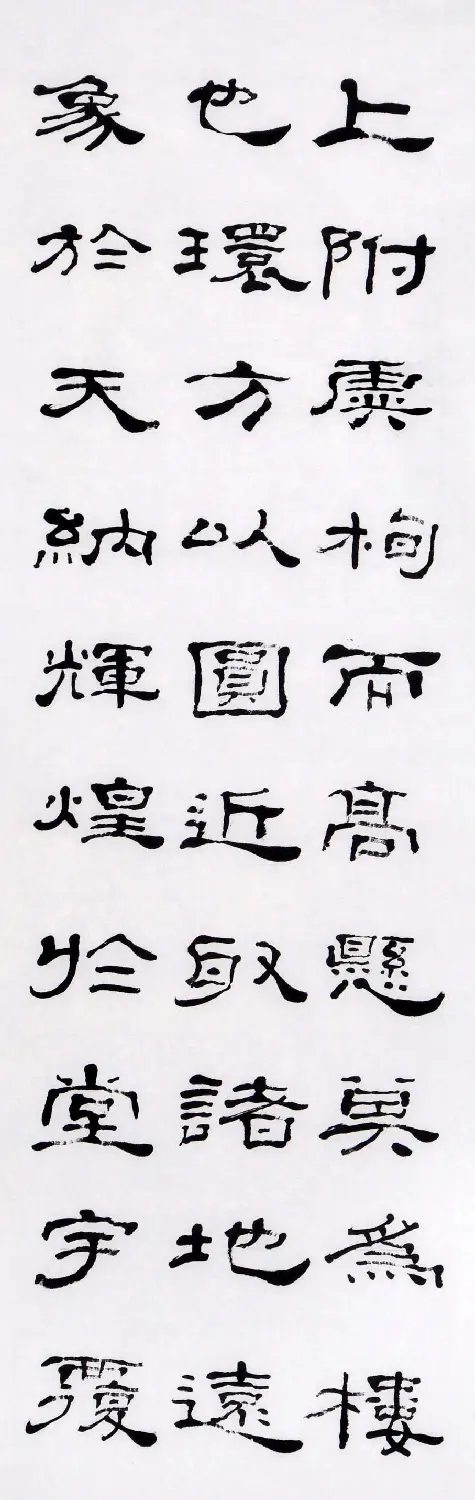 上附虡栒而高懸奠為樓
也環方以圓近取諸地遠
象於天納輝煌於堂宇覆